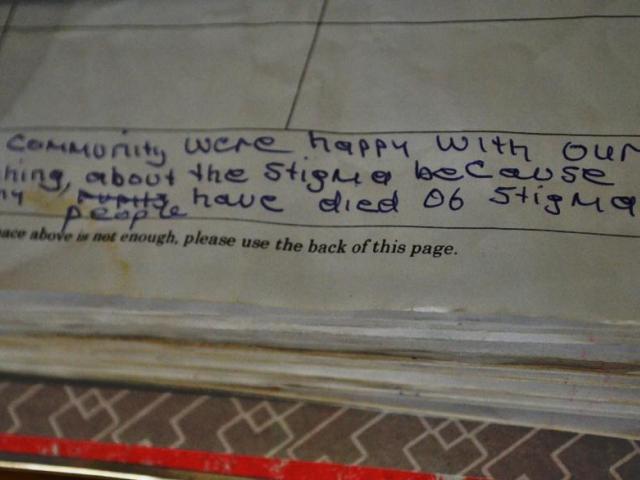 community were happy with our
hing, about the stigma because
ny have died of stigma
people
ace above is not enough, please use the back of this page.